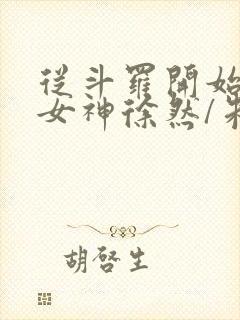 從斗羅開始
女神徐然/朱
胡啓生